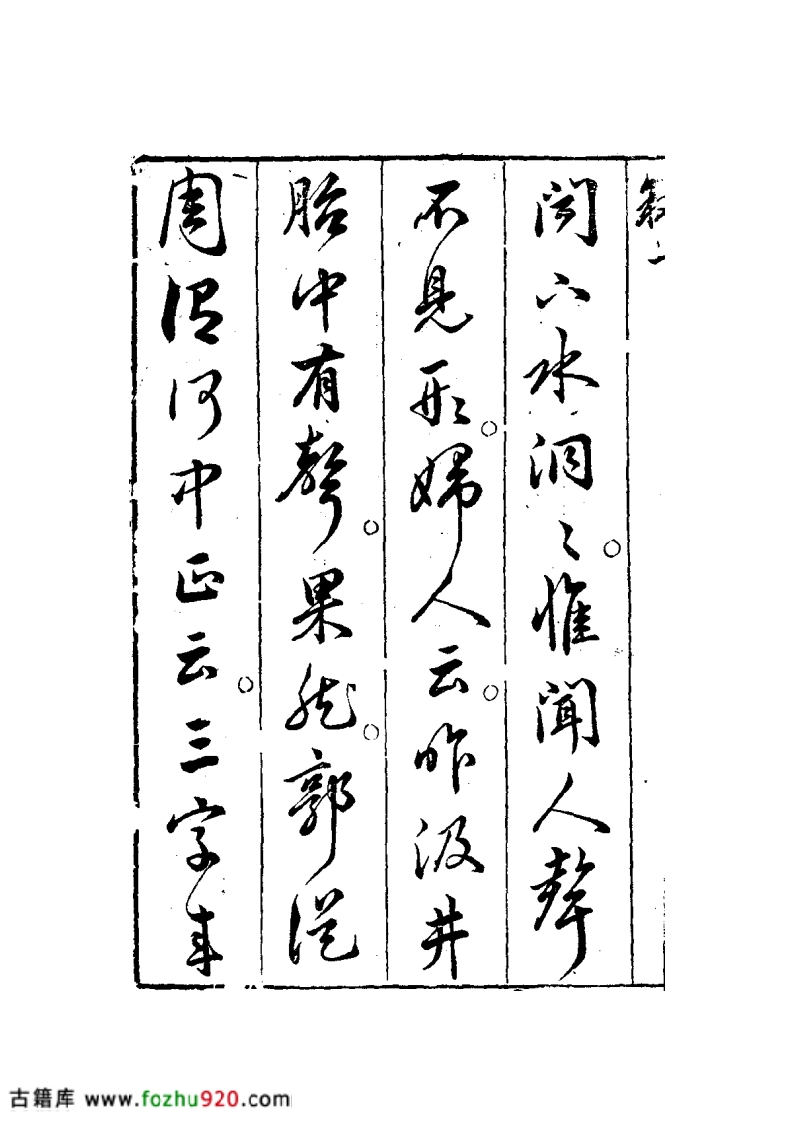 敘一
水洞〻惟聞人聲
不見形婦人云昨汲井
胎中有聲果然郭從
周謂何中正云三字来
古籍库 www.fozhu920.com